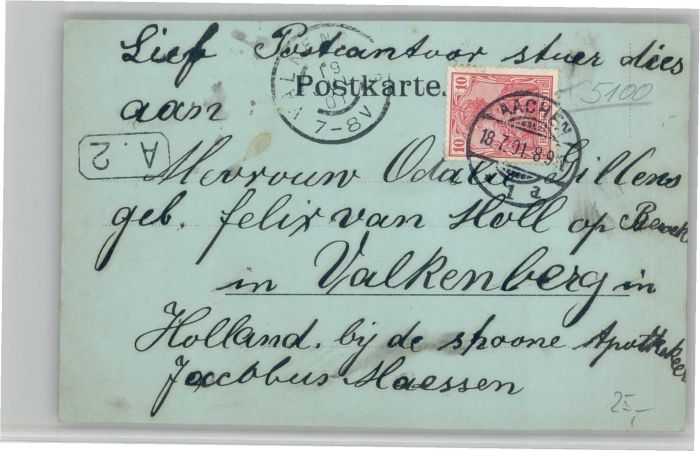 Lief Postcantoor stuer dies
VALKENB
19
01
7-8V
Postkarte.
10
10
5100
aan
AACHEN
18.7.01.8-9.
* 1 a
A.2
Mevrouw Odalie Gillens
geb. felix van Holl op
in Valkenberg in
Holland. bij de shoone Apothekeer
Jacobus Maessen
25,-